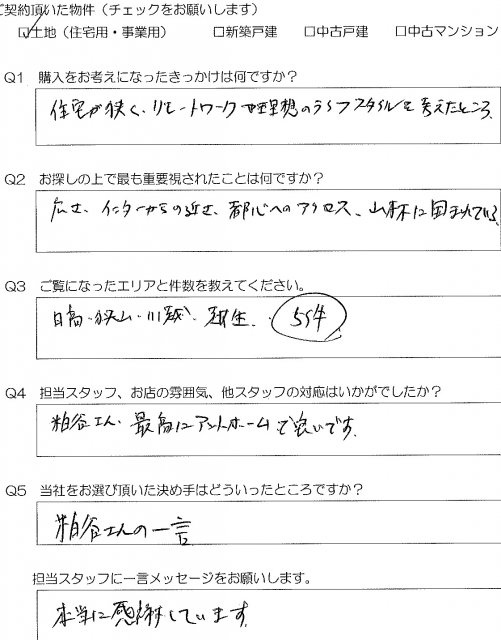 ご契約頂いた物件（チェックをお願いします）
☑土地（住宅用・事業用） □新築戸建 □中古戸建 □中古マンション
Q1 購入をお考えになったきっかけは何ですか？
住宅が狭く、リモートワークや理想のライフスタイルを考えたところ
Q2 お探しの上で最も重要視されたことは何ですか？
広さ、インターからの近さ、都心へのアクセス、山林に囲まれている
Q3 ご覧になったエリアと件数を教えてください。
日高・狭山・川越・越生、 5件
Q4 担当スタッフ、お店の雰囲気、他スタッフの対応はいかがでしたか？
粕谷さん、最高にアットホームで良いです。
Q5 当社をお選び頂いた決め手はどういったところですか？
粕谷さんの一言
担当スタッフに一言メッセージをお願いします。
本当に感謝しています。